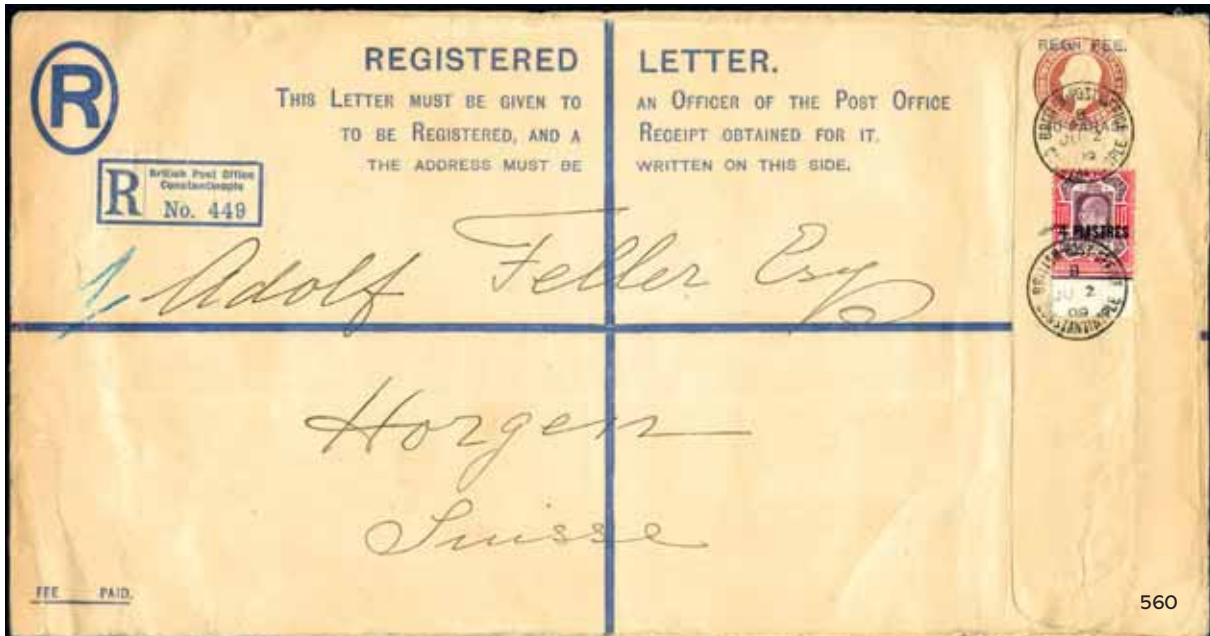 R
REGISTERED LETTER.
THIS LETTER MUST BE GIVEN TO AN OFFICER OF THE POST OFFICE
TO BE REGISTERED, AND A RECEIPT OBTAINED FOR IT.
THE ADDRESS MUST BE WRITTEN ON THIS SIDE.
R
British Post Office
Constantinople
No. 449
REGN FEE.
BRITISH POST OFFICE
PIASTRES
BRITISH POST OFFICE
B
JU 2
09
CONSTANTINOPLE
Adolf Feller Esq
Horgen
Suisse
FEE PAID.
560